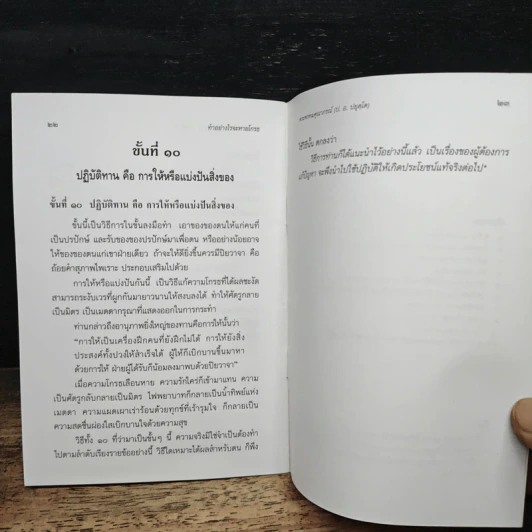 ๒๒
ทำอย่างไรจะหายโกรธ
ขั้นที่ ๑๐
ปฏิบัติทาน คือ การให้หรือแบ่งปันสิ่งของ
ขั้นที่ ๑๐ ปฏิบัติทาน คือ การให้หรือแบ่งปันสิ่งของ
ขั้นนี้เป็นวิธีการในขั้นลงมือทำ เอาของของตนให้แก่คนที่
เป็นปรปักษ์ และรับของของปรปักษ์มาเพื่อตน หรืออย่างน้อยอาจ
ให้ของของตนแก่เขาฝ่ายเดียว ถ้าจะให้ดียิ่งขึ้นควรมีปิยวาจา คือ
ถ้อยคำสุภาพไพเราะ ประกอบเสริมไปด้วย
การให้หรือแบ่งปันกันนี้ เป็นวิธีแก้ความโกรธที่ได้ผลชะงัด
สามารถระงับเวรที่ผูกกันมายาวนานให้สงบลงได้ ทำให้ศัตรูกลาย
เป็นมิตร เป็นเมตตากรุณาที่แสดงออกในการกระทำ
ท่านกล่าวถึงอานุภาพยิ่งใหญ่ของทานคือการให้นั้นว่า
“การให้เป็นเครื่องฝึกคนที่ยังฝึกไม่ได้ การให้ยังสิ่ง
ประสงค์ทั้งปวงให้สำเร็จได้ ผู้ให้ก็เบิกบานขึ้นมาหา
ด้วยการให้ ฝ่ายผู้ได้รับก็น้อมลงมาพบด้วยปิยวาจา”
เมื่อความโกรธเลือนหาย ความรักใคร่ก็เข้ามาแทน ความ
เป็นศัตรูกลับกลายเป็นมิตร ไฟพยาบาทก็กลายเป็นน้ำทิพย์แห่ง
เมตตา ความแผดเผาเร่าร้อนด้วยทุกข์ที่เร้ารุมใจ ก็กลายเป็น
ความสดชื่นผ่องใสเบิกบานใจด้วยความสุข
วิธีทั้ง ๑๐ ที่ว่ามาเป็นขั้นๆ นี้ ความจริงมิใช่จำเป็นต้องทำ
ไปตามลำดับเรียงรายข้ออย่างนี้ วิธีใดเหมาะได้ผลสำหรับตน ก็พึง
พระพรหมคุณาภรณ์ (ป. อ. ปยุตฺโต)
๒๓
ใช้วิธีนั้น ตกลงว่า
วิธีการท่านก็ได้แนะนำไว้อย่างนี้แล้ว เป็นเรื่องของผู้ต้องการ
แก้ปัญหา จะพึงนำไปใช้ปฏิบัติให้เกิดประโยชน์แท้จริงต่อไป”